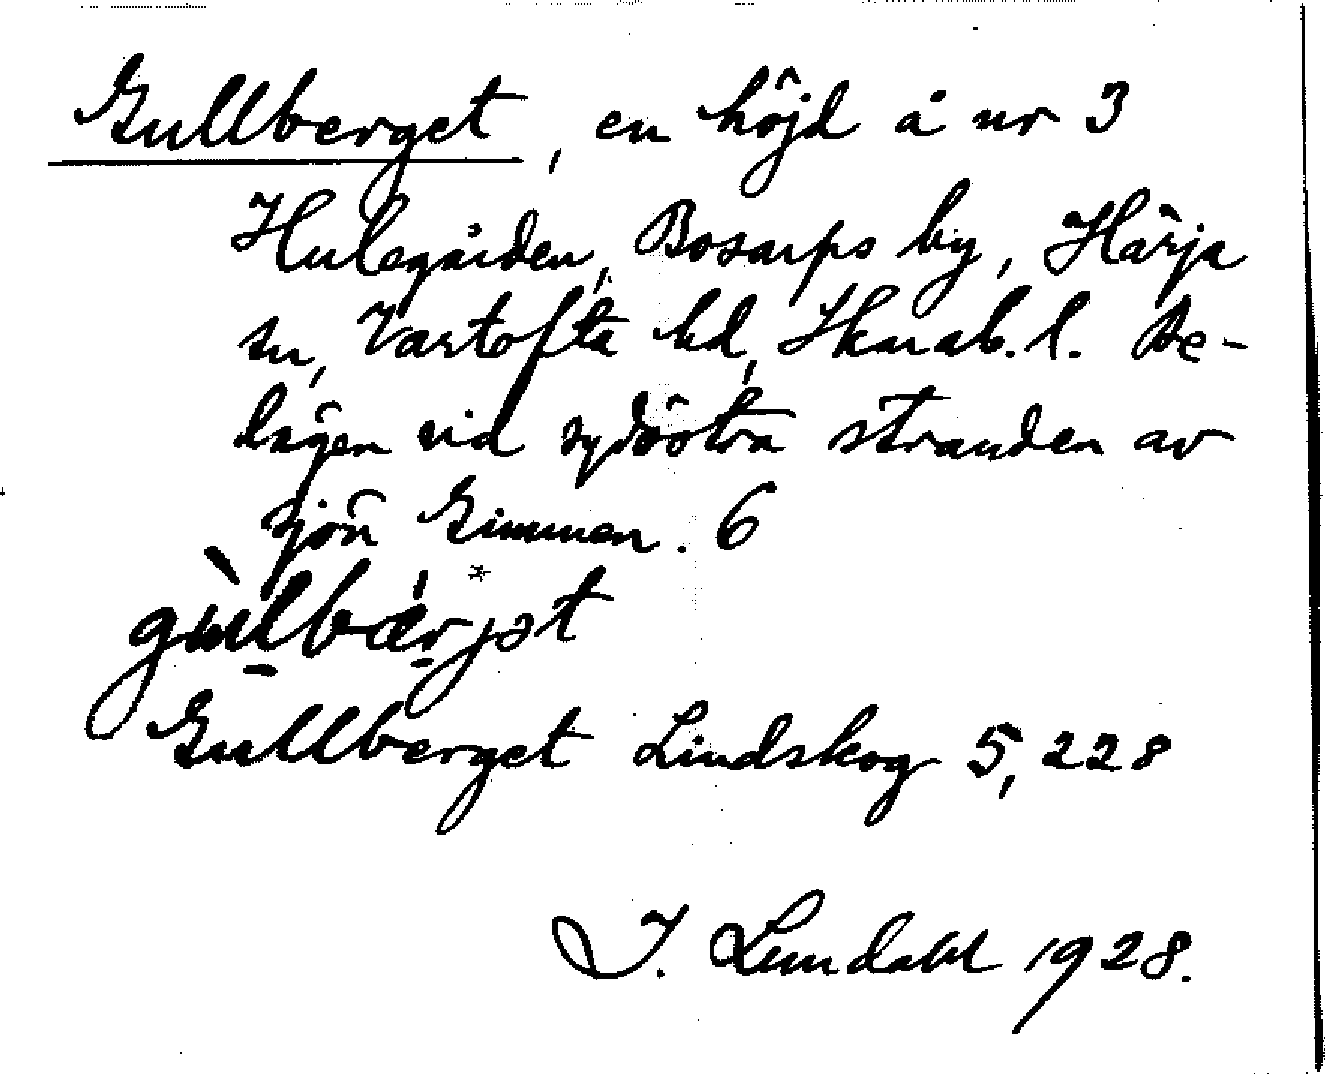 Gullberget, en höjd å nr 3
Hulegården, Bosarps by, Härja
sn, Vartofta hd, Skarab. l. Be-
lägen vid sydöstra stranden av
sjön Gimmen. 6
gùlbǽrjət *
Gullberget Lindskog 5, 228
I. Lundahl 1928.